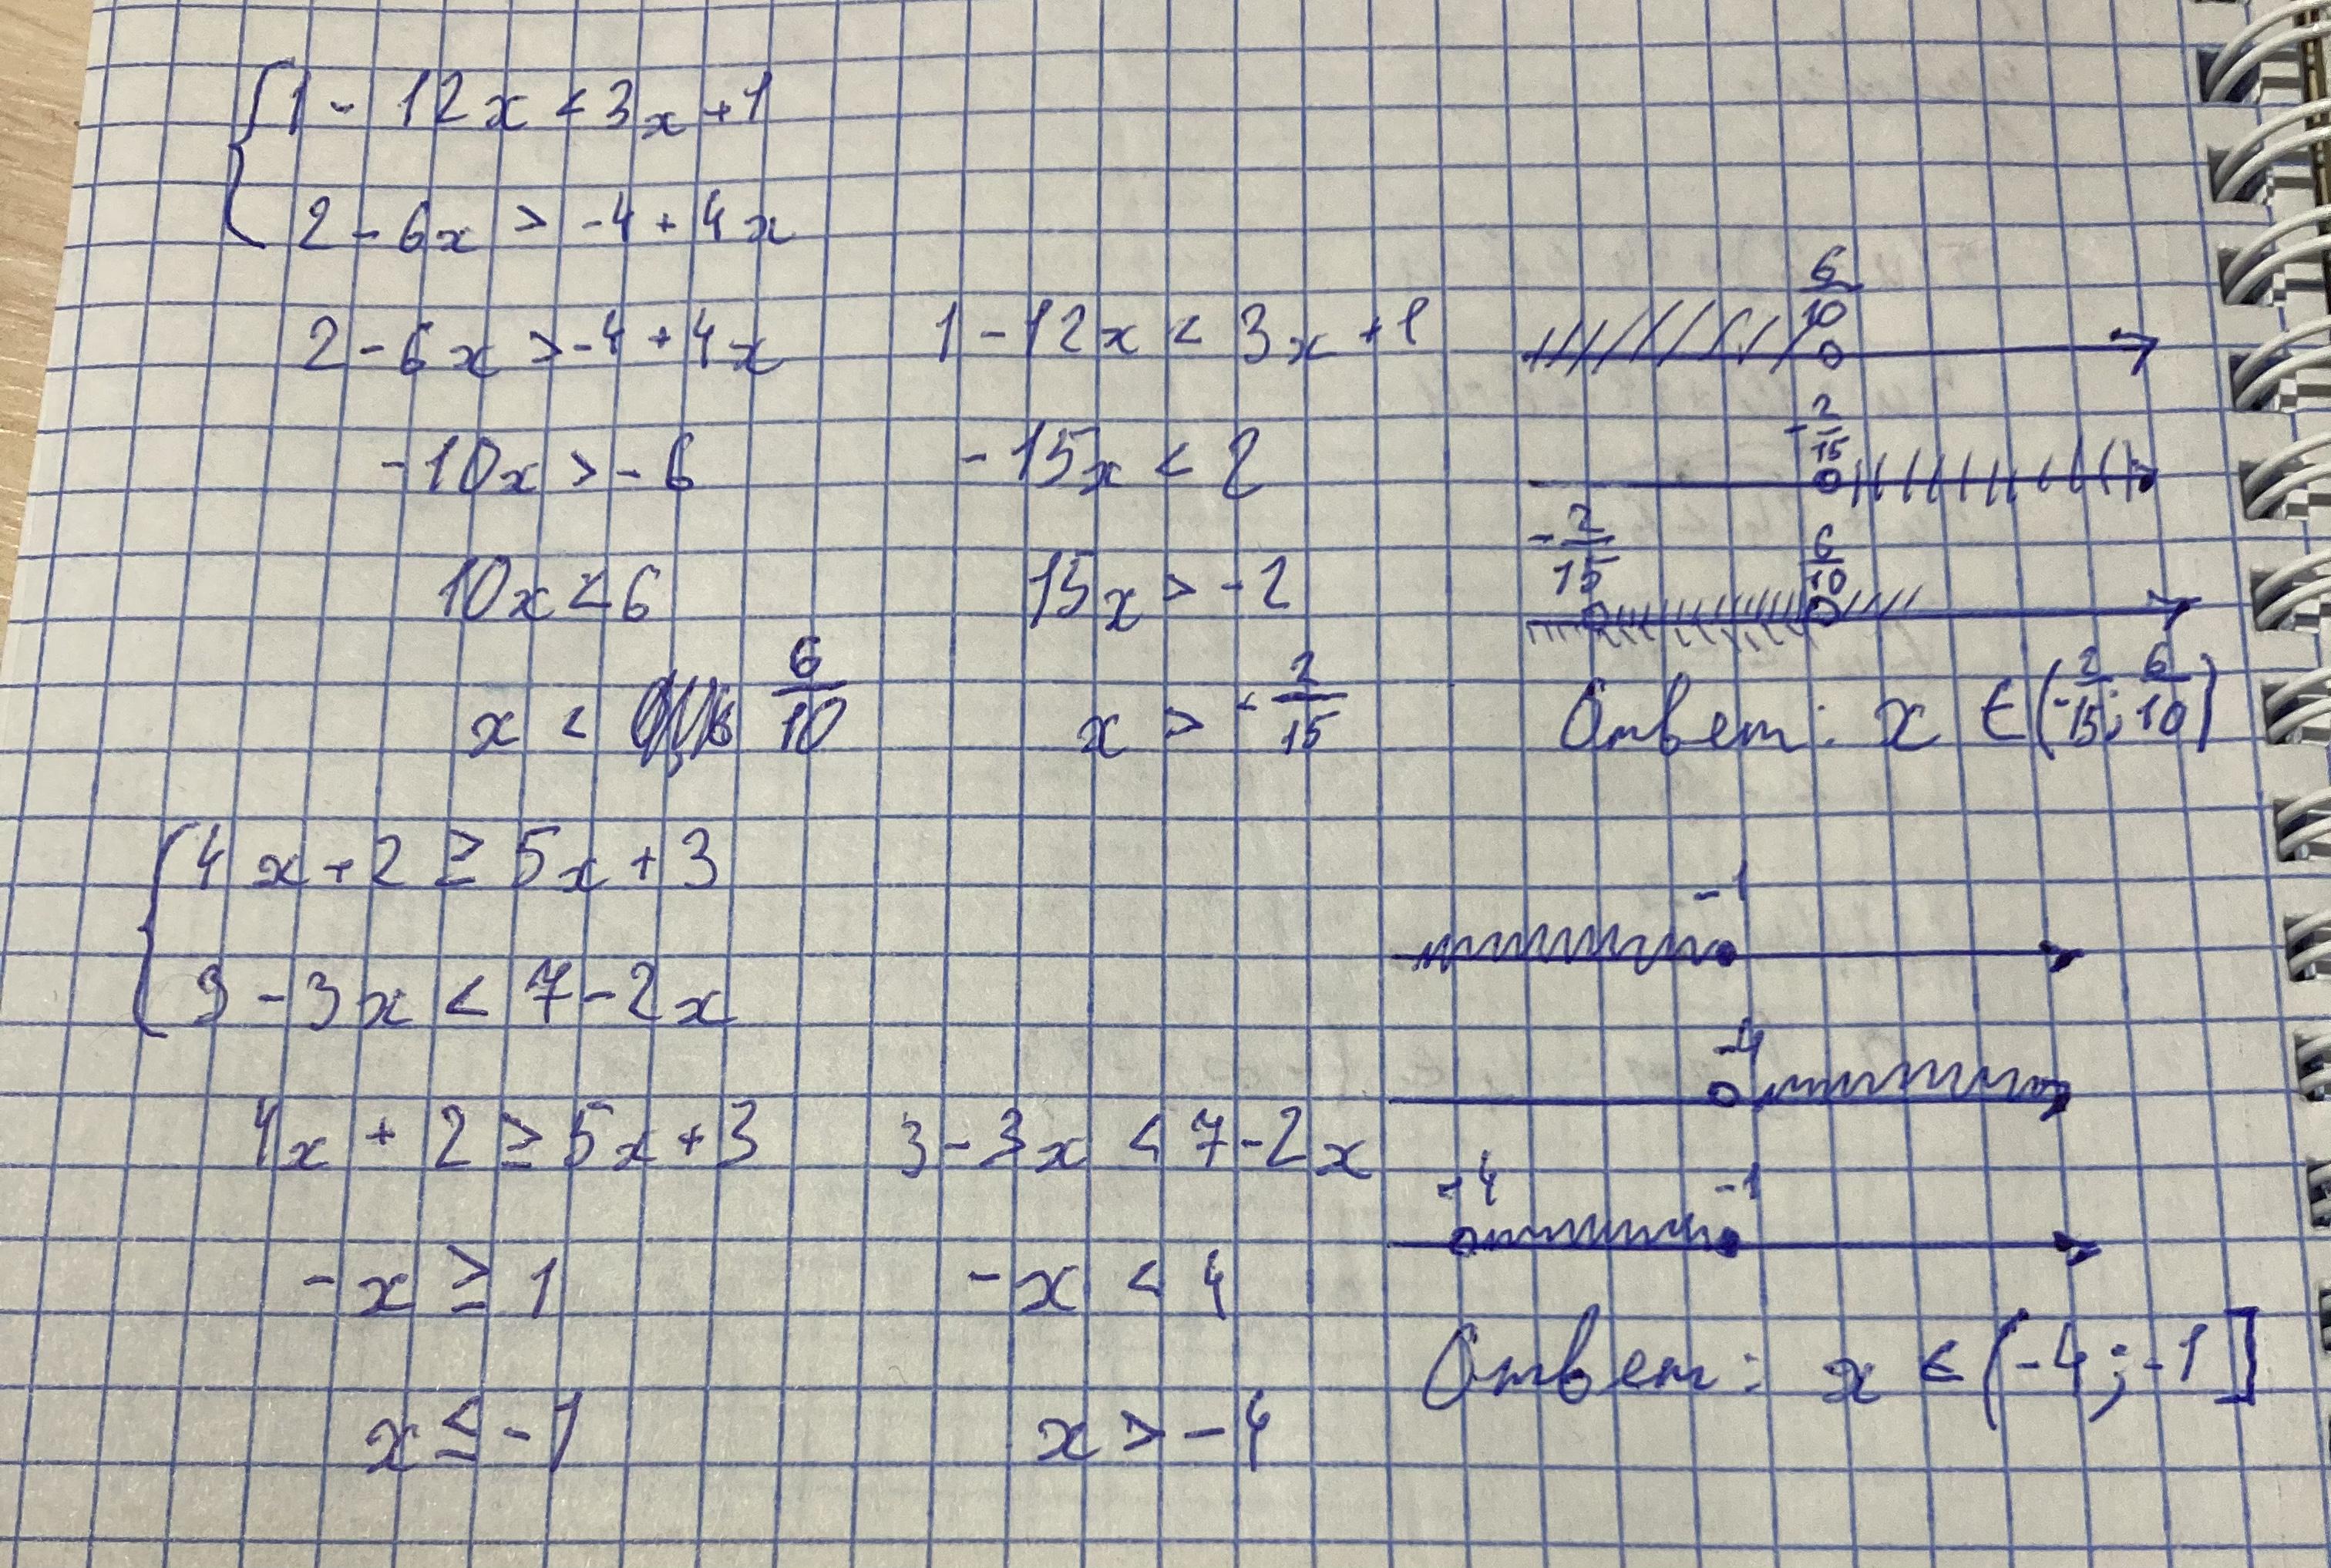 1 - 12x < 3x + 1
2 - 6x > -4 + 4x
2 - 6x > -4 + 4x
-10x > -6
10x < 6
x < 6/10
1 - 12x < 3x + 1
-15x < 2
15x > -2
x > -2/15
6/10
-2/15
-2/15 6/10
Ответ: x ∈ (-2/15; 6/10)
4x + 2 ≥ 5x + 3
3 - 3x < 7 - 2x
4x + 2 ≥ 5x + 3
-x ≥ 1
x ≤ -1
3 - 3x < 7 - 2x
-x < 4
x > -4
-1
-4
-4 -1
Ответ: x ∈ (-4; -1]